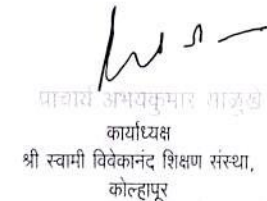 प्राचार्य अभयकुमार साळुंखे
कार्याध्यक्ष
श्री स्वामी विवेकानंद शिक्षण संस्था,
कोल्हापूर